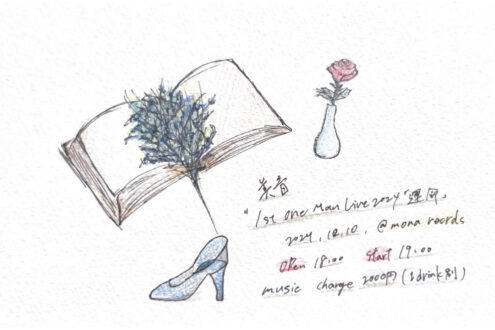 "1st one Man Live 2024
2024.12.10. @mona records
open 18:00 start 19:00
music charge 2000円(1drink別)